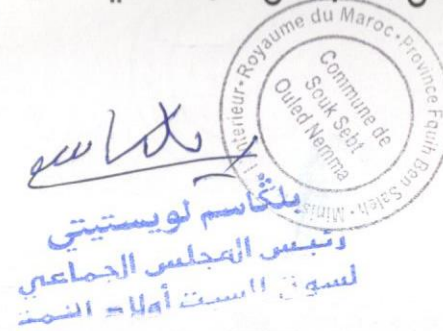 Royaume du Maroc • Province Fquih Ben Saleh • Ministère de l'Intérieur •
Commune de
Souk Sebt
Ouled Nemma
بلڭاسم لويستيتي
رئيس المجلس الجماعي
لسوق السبت أولاد النمة